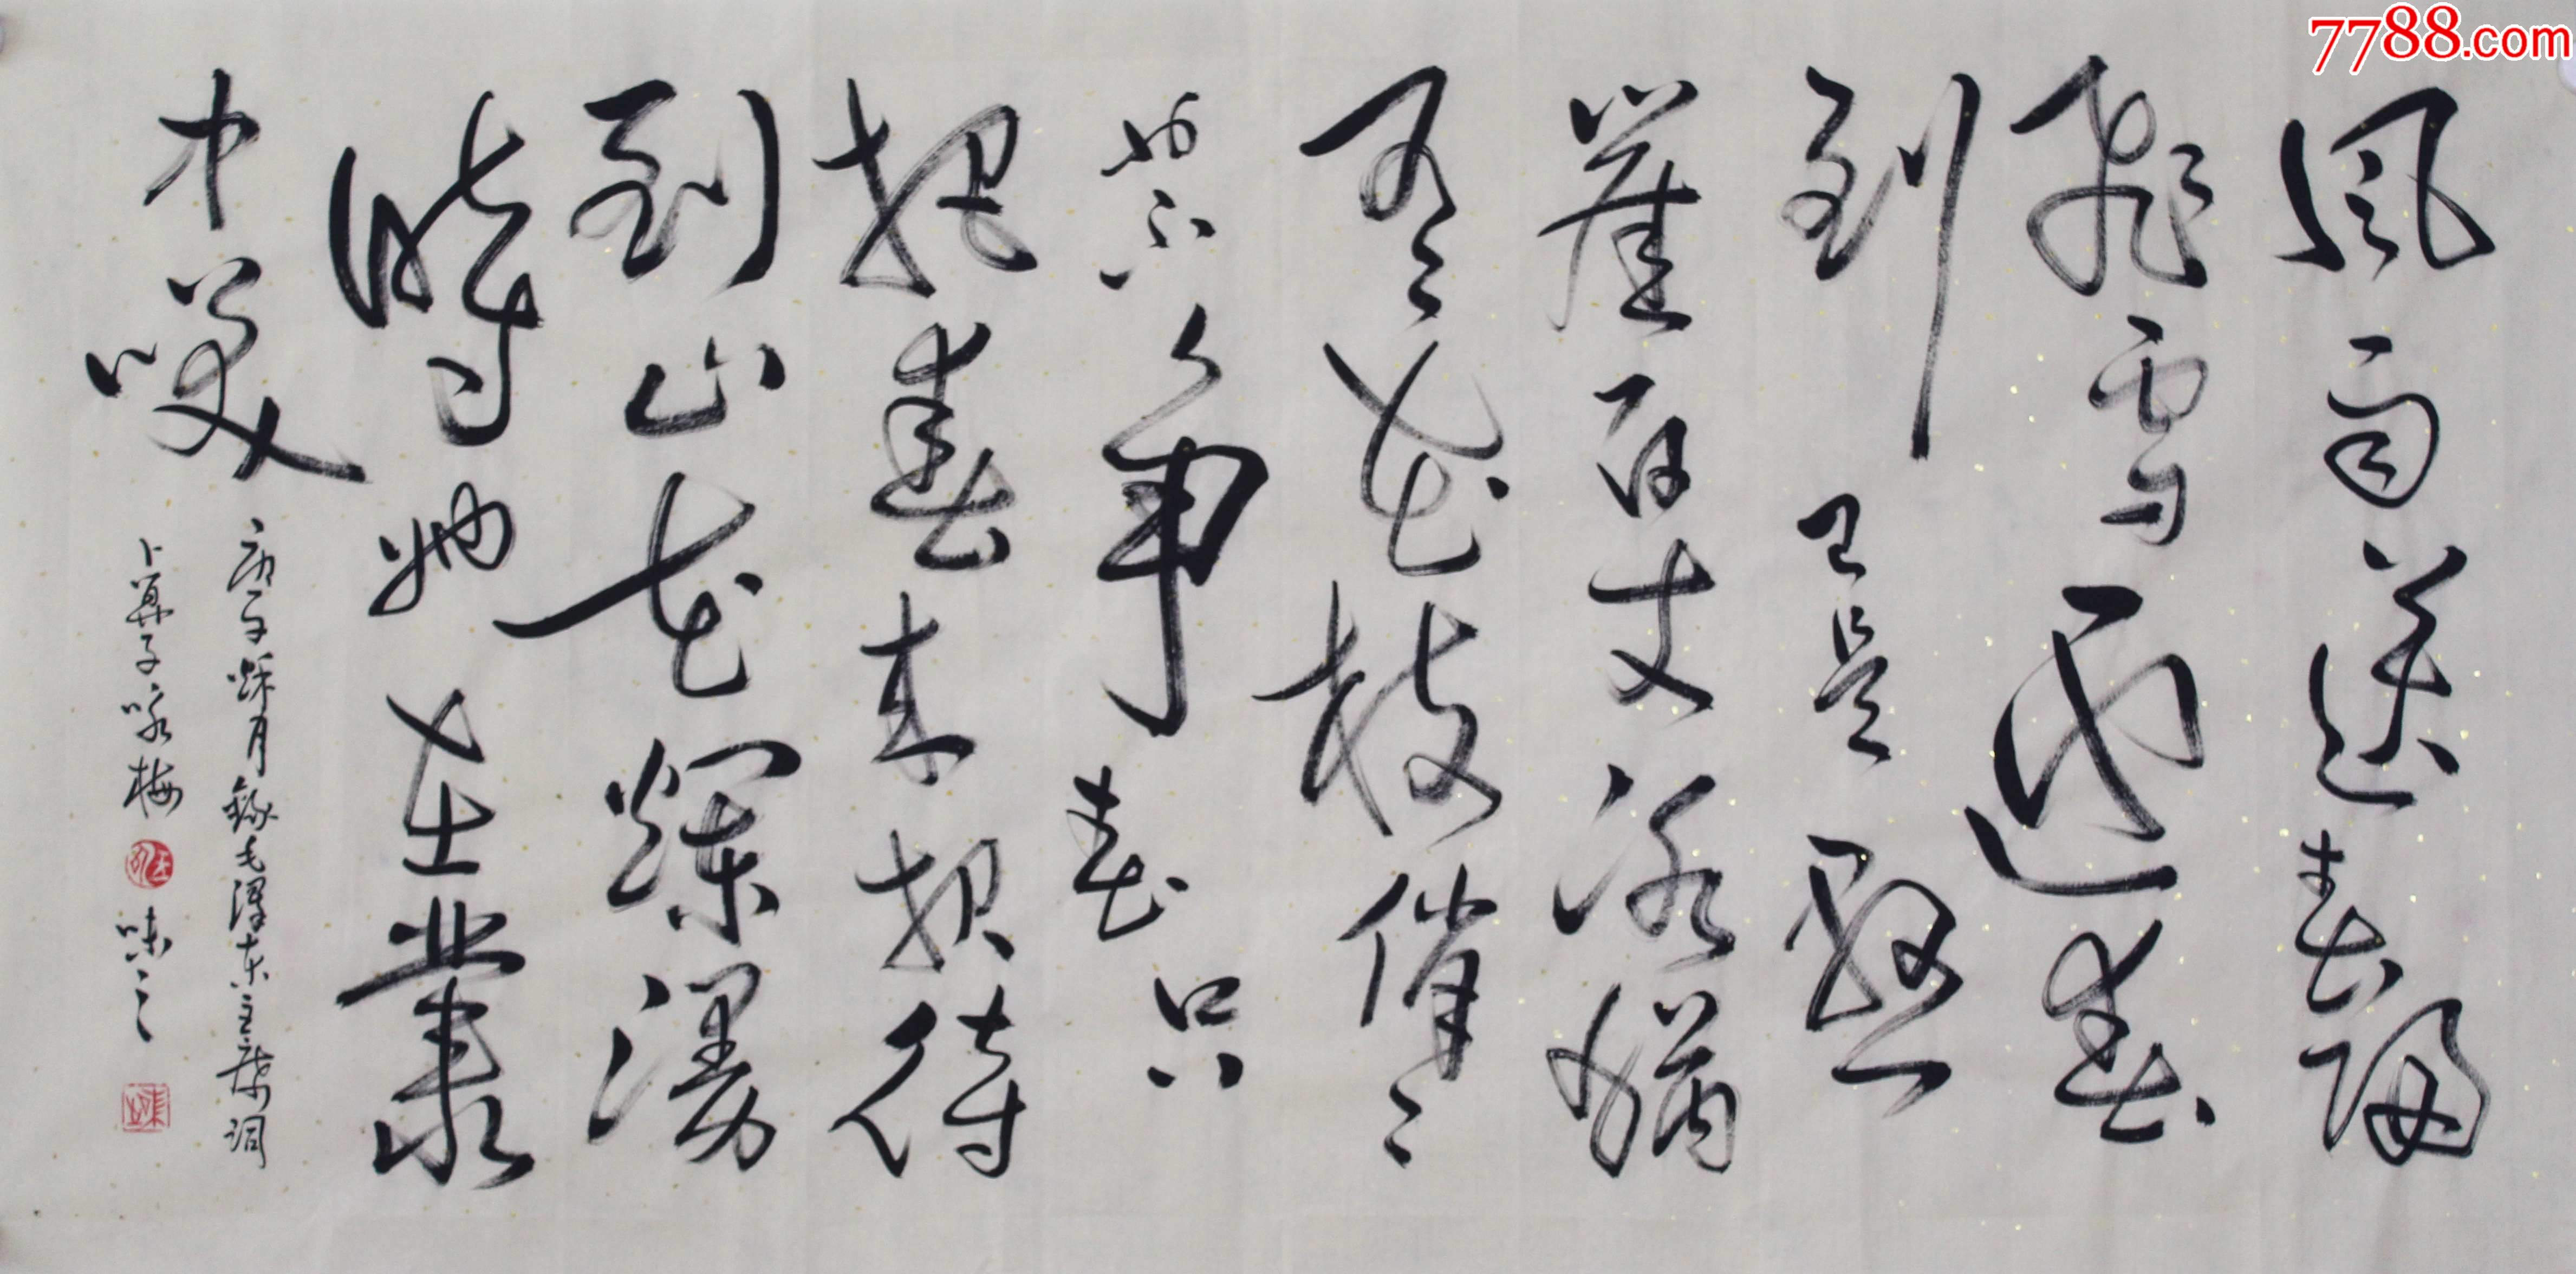 風雨送春歸
飛雪迎春
到已是懸
崖百丈冰猶
有花枝俏〻
也不争春只
把春来报待
到山花爛漫
時她在叢
中笑
庚子秌月錄毛澤东主席词
卜算子咏梅
味之
7788.com